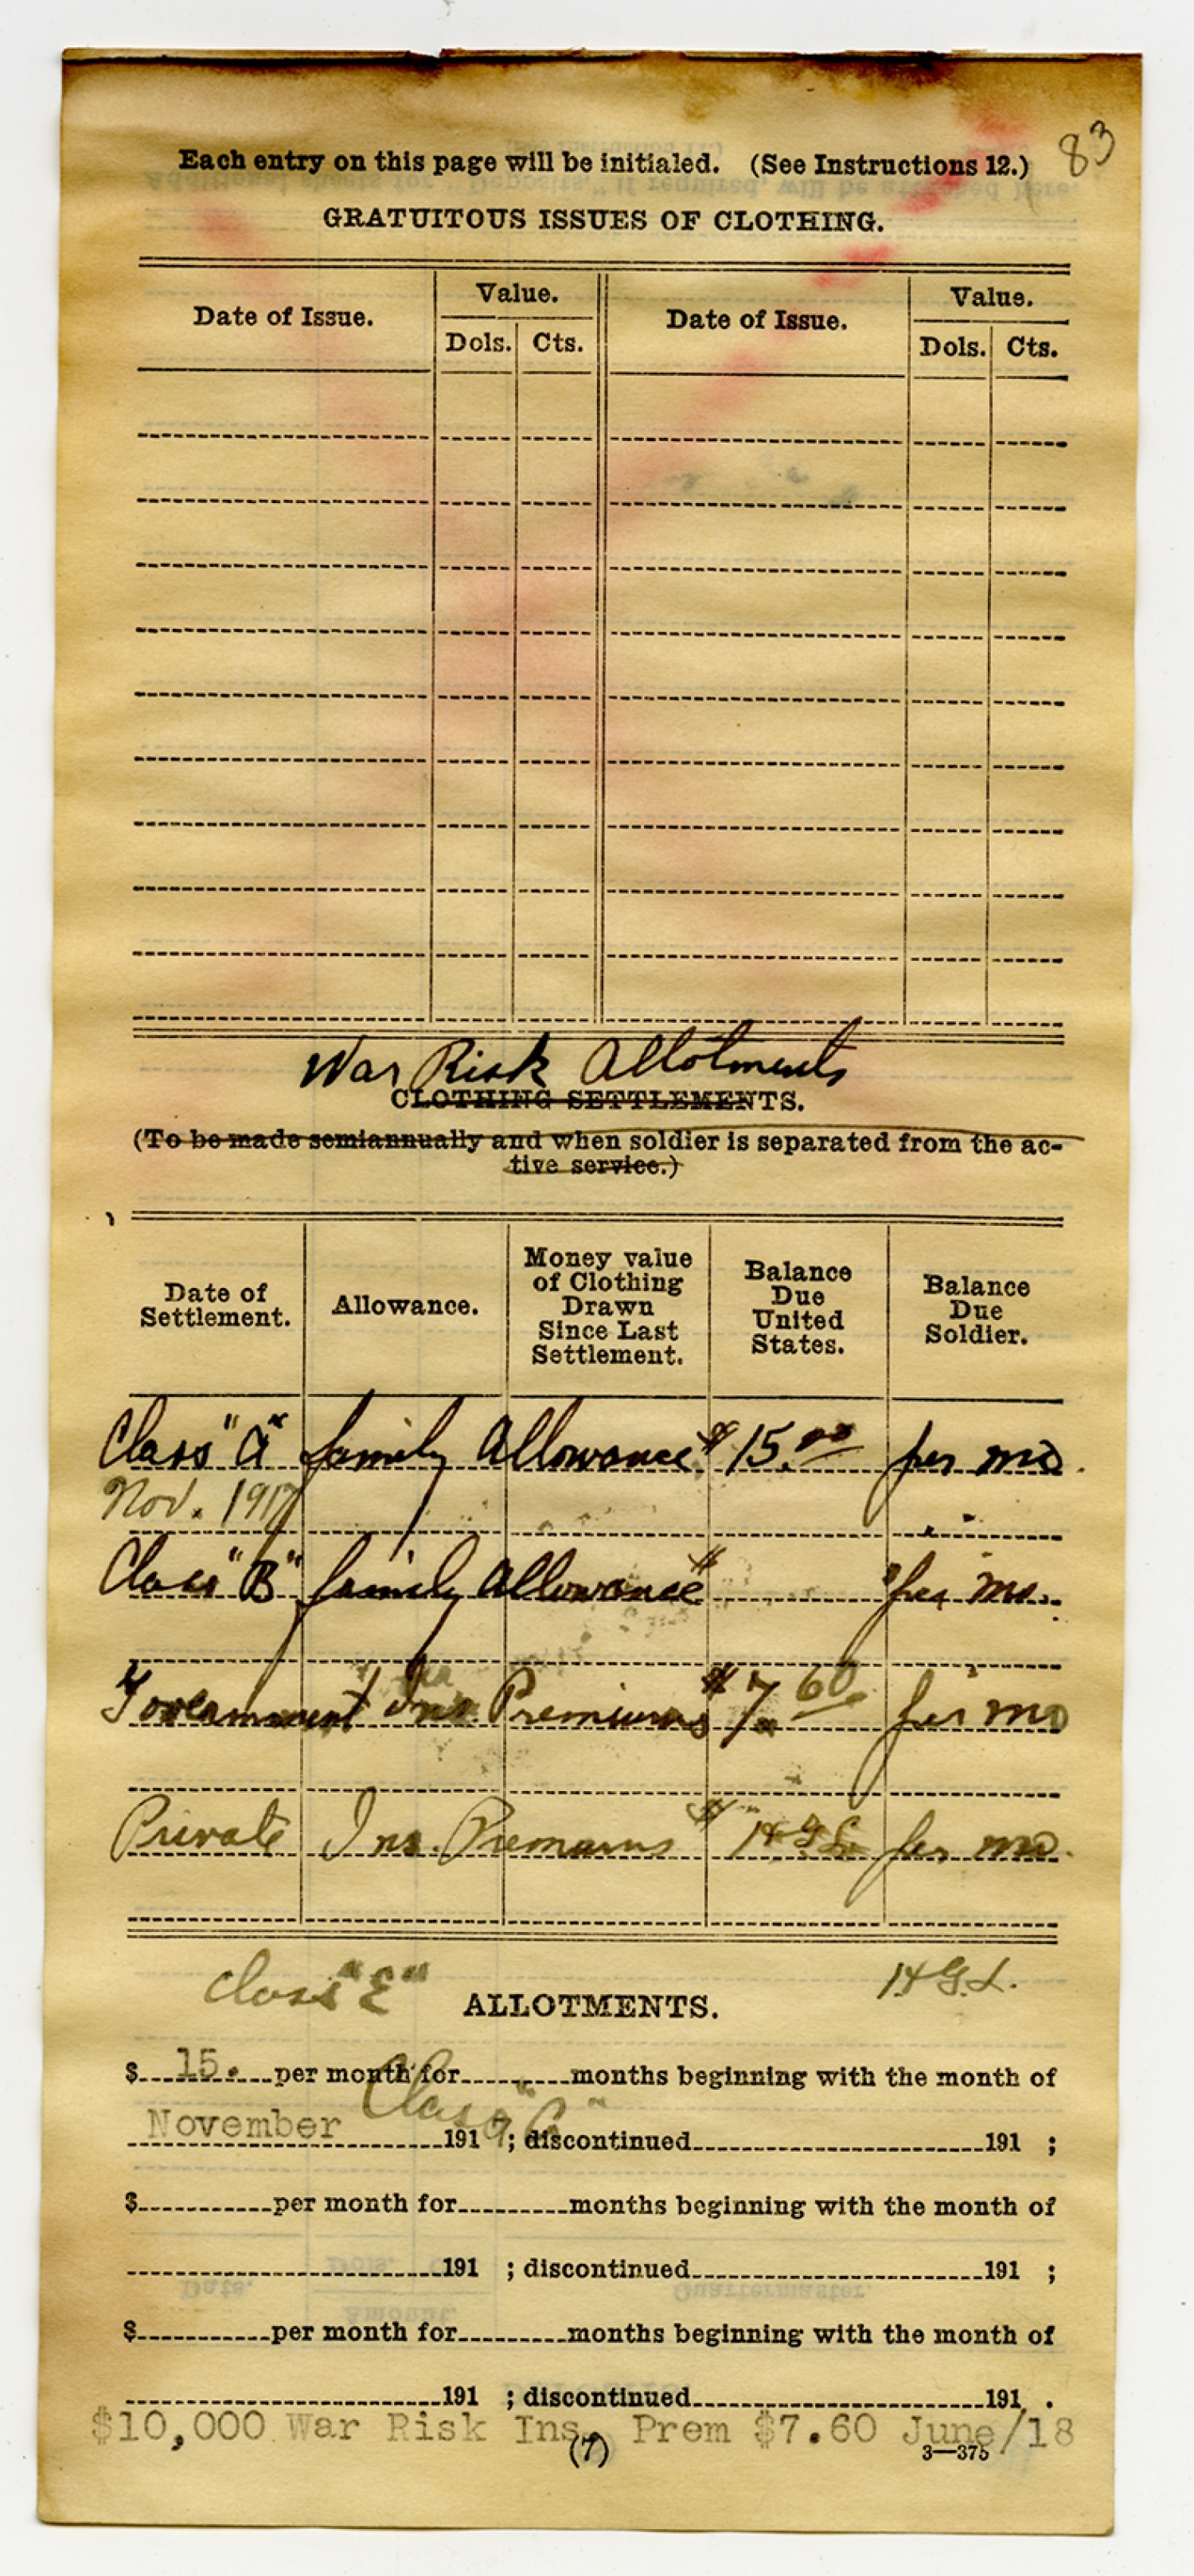 83
Each entry on this page will be initialed. (See Instructions 12.)
GRATUITOUS ISSUES OF CLOTHING.
Date of Issue. Value. Date of Issue. Value.
Dols. Cts. Dols. Cts.
War Risk Allotments
CLOTHING SETTLEMENTS.
(To be made semiannually and when soldier is separated from the ac-
tive service.)
Date of Settlement. Allowance. Money value of Clothing Drawn Since Last Settlement. Balance Due United States. Balance Due Soldier.
Class "A" family Allowance $15.00 per mo.
Nov. 1917
Class "B" family Allowance $ per mo.
Government Ins Premiums $7.60 per mo
Private Ins. Premiums $ per mo.
Class "E"
ALLOTMENTS.
$ 15. per month for months beginning with the month of
Class "A"
November 1917; discontinued 191 ;
$ per month for months beginning with the month of
191 ; discontinued 191 ;
$ per month for months beginning with the month of
191 ; discontinued 191 .
$10,000 War Risk Ins. Prem $7.60 June/18
(7)
3—375